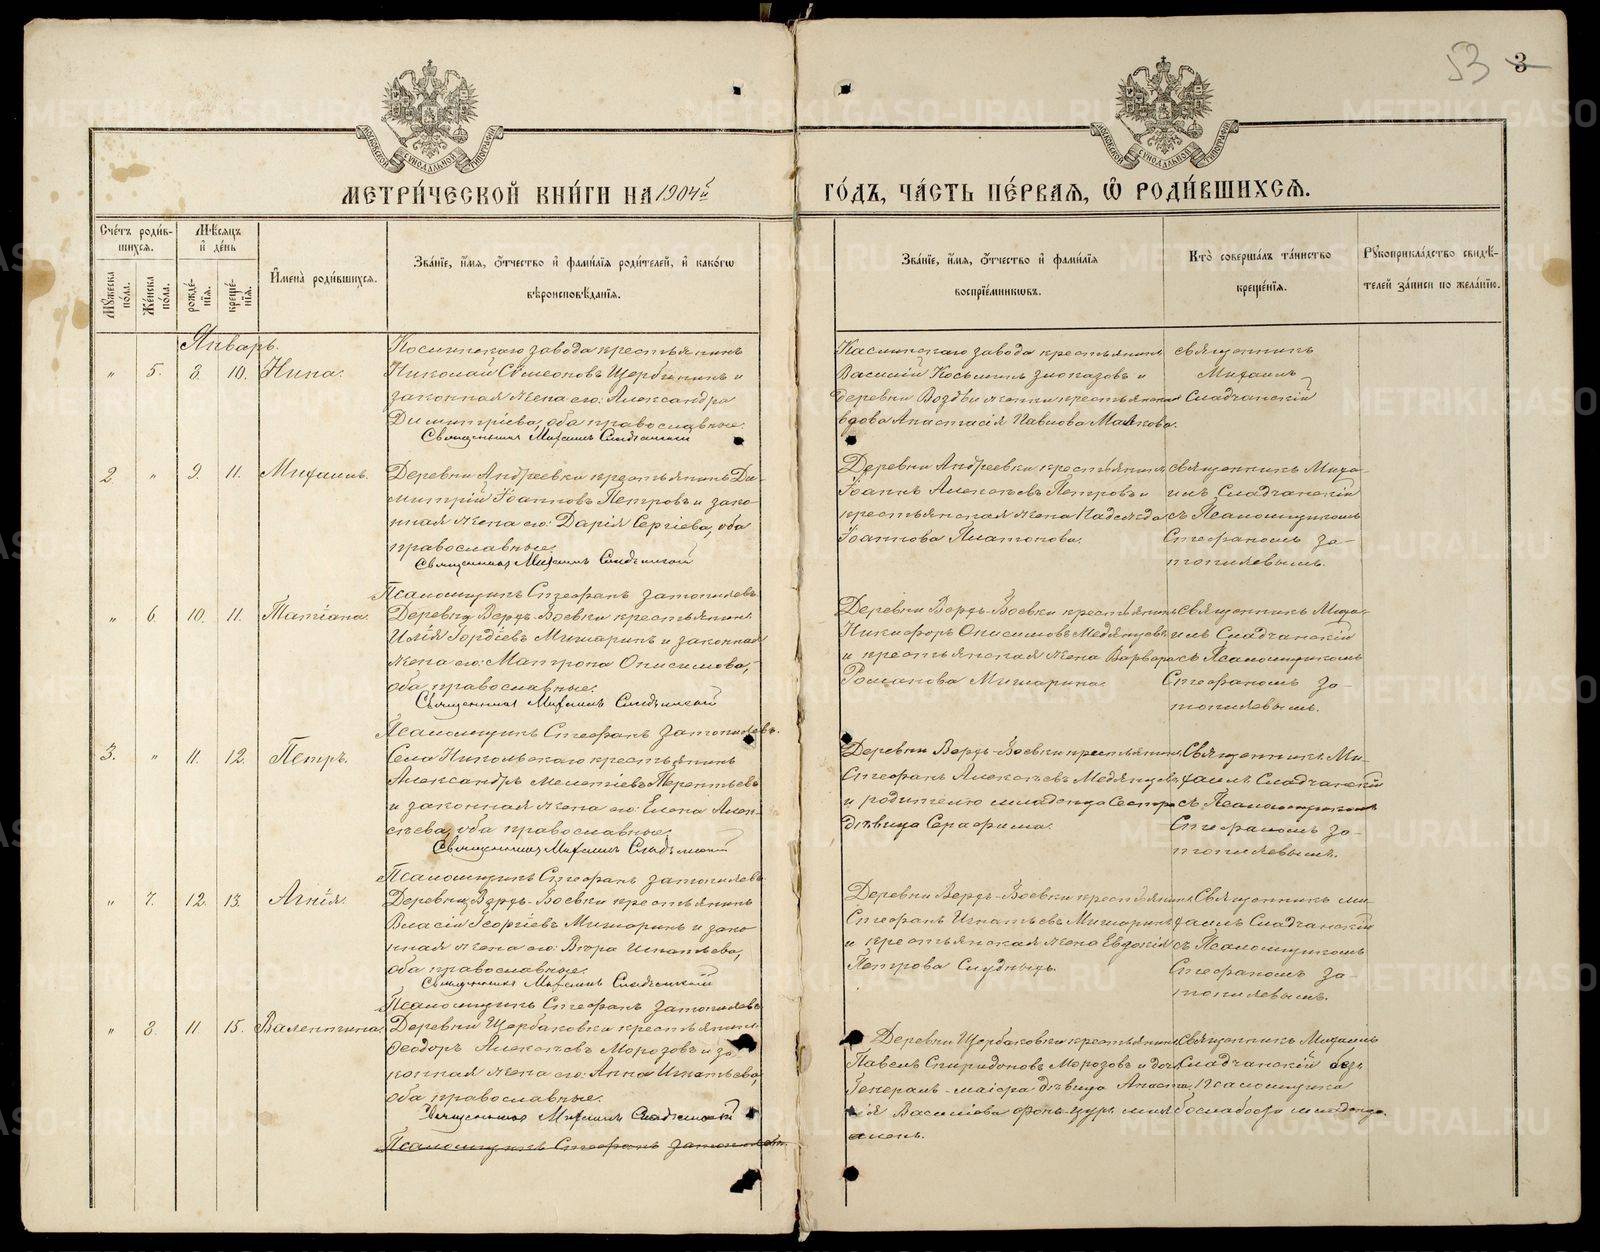 53 3
МОСКОВСКОЙ СУНОДАЛЬНОЙ ТИПОГРАФІИ
МОСКОВСКОЙ СУНОДАЛЬНОЙ ТИПОГРАФІИ
МЕТРИ́ЧЕСКОЙ КНИ́ГИ НА 1904й
ГО́ДЪ, ЧА́СТЬ ПЕ́РВАЯ, Ѡ҆ РОДИ́ВШИХСЯ.
Сче́тъ роди́в-
шихся.
Мꙋжеска
по́ла.
Же́нска
по́ла.
Мѣ́сяцъ
и҆ де́нь
рожде́-
нїя.
креще́-
нїя.
И҆мена̀ роди́вшихся.
Зва́нїе, и҆́мя, ѻ҆́тчество и҆ фами́лїя роди́телей, и҆ како́гѡ
вѣроисповѣ́данїя.
Зва́нїе, и҆́мя, ѻ҆́тчество и҆ фами́лїя
воспрїе́мникѡвъ.
Кто̀ соверша́лъ та́инство
креще́нїя.
Рꙋкоприкла́дство свидѣ́-
телей за́писи по жела́нїю.
Январь.
" 5. 3. 10. Нина.
Каслинскаго завода крестьянинъ
Николай Сѵмеоновъ Щербининъ и
законная жена его: Александра
Димитріева, оба православные.
Священникъ Михаилъ Сладчанскій
Каслинскаго завода крестьянинъ
Василій Косьминъ Злоказовъ и
деревни Воздвиженки крестьянская
вдова Анастасія Павлова Малкова.
священникъ
Михаилъ
Сладчанскій
2. " 9. 11. Михаилъ.
Деревни Андреевки крестьянинъ Ди-
митрій Іоанновъ Петровъ и зако-
нная жена его: Дарія Сергіева, оба
православные.
Священникъ Михаилъ Сладчанскій
Псаломщикъ Стефанъ Затопляевъ
Деревни Андреевки крестьянинъ
Іоаннъ Алексѣевъ Петровъ и
крестьянская жена Надежда
Іоаннова Платонова.
священникъ Миха-
илъ Сладчанскій
съ Псаломщикомъ
Стефаномъ За-
топляевымъ.
" 6. 10. 11. Татіана.
Деревни Вердь-Воевки крестьянинъ
Илія Гордіевъ Мишаринъ и законная
жена его: Матрона Онисимова,
оба православные.
Священникъ Михаилъ Сладчанскій
Псаломщикъ Стефанъ Затопляевъ.
Деревни Вердь-Воевки крестьянинъ
Никифоръ Онисимовъ Медянцевъ
и крестьянская жена Варвара
Романова Мишарина.
священникъ Миха-
илъ Сладчанскій
съ Псаломщикомъ
Стефаномъ За-
топляевымъ.
3. " 11. 12. Петръ.
Села Никольскаго крестьянинъ
Александръ Мелетіевъ Терентьевъ
и законная жена его: Елена Алек-
сѣева, оба православные.
Священникъ Михаилъ Сладчанскій
Псаломщикъ Стефанъ Затопляевъ
Деревни Вердь-Воевки крестьянинъ
Стефанъ Алексѣевъ Медянцевъ
и родителю младенца Сестра
дѣвица Серафима.
Священникъ Ми-
хаилъ Сладчанскій
съ Псаломщикомъ
Стефаномъ За-
топляевымъ.
" 7. 12. 13. Агнія.
Деревни Вердь-Воевки крестьянинъ
Власій Георгіевъ Мишаринъ и зако-
нная жена его: Вѣра Игнатьева,
оба православные.
Священникъ Михаилъ Сладчанскій
Псаломщикъ Стефанъ Затопляевъ
Деревни Вердь-Воевки крестьянинъ
Стефанъ Игнатьевъ Мишаринъ
и крестьянская жена Евдокія
Петрова
Священникъ Ми-
хаилъ Сладчанскій
съ Псаломщикомъ
Стефаномъ За-
топляевымъ.
" 8. 11. 15. Валентина.
Деревни Щербаковки крестьянинъ
Ѳеодоръ Алексѣевъ Морозовъ и за-
конная жена его: Анна Игнатьева,
оба православные.
Священникъ Михаилъ Сладчанскій
Псаломщикъ Стефанъ Затопляевъ.
Деревни Щербаковки крестьянинъ
Павелъ Спиридоновъ Морозовъ и дочь
Генералъ-маіора дѣвица Анаста-
сія Василіева фонъ-
Священникъ Михаилъ
Сладчанскій безъ
Псаломщика
по слабости младенца.
METRIKI.GASO-URAL.RU